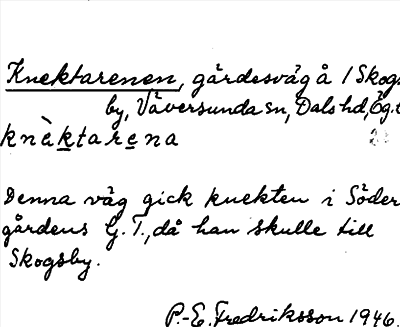 Knektarenen, gärdesväg å 1 Skogs
by, Väversunda sn, Dals hd, Ög.
knὰktarena
Denna väg gick knekten i Söder
gårdens G. T., då han skulle till
Skogsby.
P.-E. Fredriksson 1946.